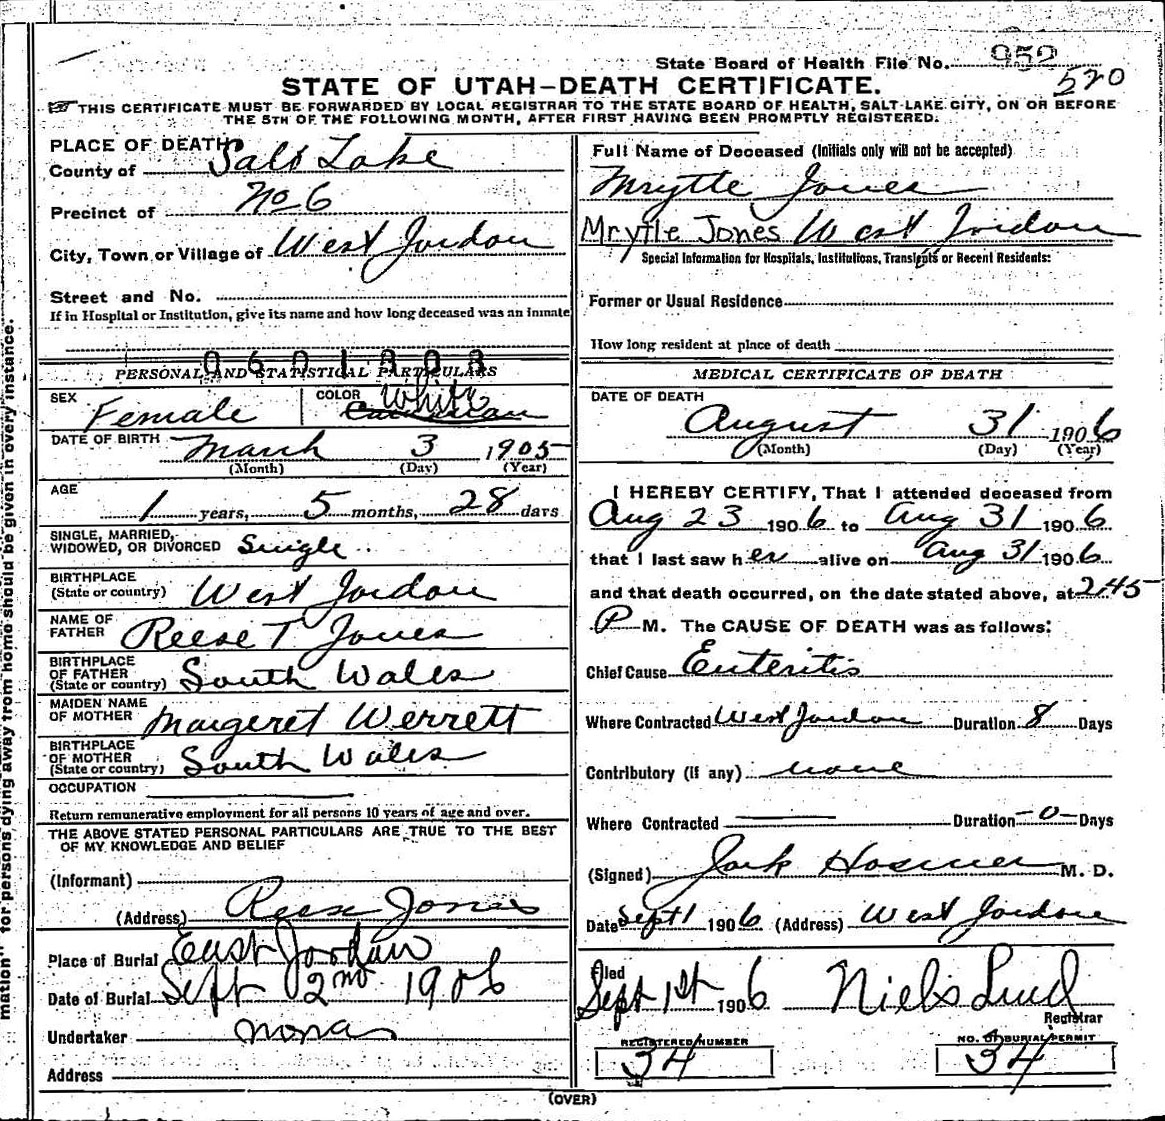 State Board of Health File No. 952
520
STATE OF UTAH—DEATH CERTIFICATE.
THIS CERTIFICATE MUST BE FORWARDED BY LOCAL REGISTRAR TO THE STATE BOARD OF HEALTH, SALT LAKE CITY, ON OR BEFORE
THE 5TH OF THE FOLLOWING MONTH, AFTER FIRST HAVING BEEN PROMPTLY REGISTERED.
PLACE OF DEATH
County of Salt Lake
Precinct of No 6
City, Town or Village of West Jordan
Street and No.
If in Hospital or Institution, give its name and how long deceased was an inmate
0601803
PERSONAL AND STATISTICAL PARTICULARS
SEX Female COLOR White
DATE OF BIRTH March 3 1905
(Month) (Day) (Year)
AGE
1 years, 5 months, 28 days
SINGLE, MARRIED,
WIDOWED, OR DIVORCED Single
BIRTHPLACE
(State or country) West Jordan
NAME OF
FATHER Reese T Jones
BIRTHPLACE
OF FATHER
(State or country) South Wales
MAIDEN NAME
OF MOTHER Margeret Werrett
BIRTHPLACE
OF MOTHER
(State or country) South Wales
OCCUPATION
Return remunerative employment for all persons 10 years of age and over.
THE ABOVE STATED PERSONAL PARTICULARS ARE TRUE TO THE BEST
OF MY KNOWLEDGE AND BELIEF
(Informant)
(Address) Reese Jones
Place of Burial East Jordan
Date of Burial Sept 2nd 1906
Undertaker
Address
Full Name of Deceased (Initials only will not be accepted)
Mrytle Jones
Mrytle Jones West Jordan
Special Information for Hospitals, Institutions, Transients or Recent Residents:
Former or Usual Residence
How long resident at place of death
MEDICAL CERTIFICATE OF DEATH
DATE OF DEATH
August 31 1906
(Month) (Day) (Year)
I HEREBY CERTIFY, That I attended deceased from
Aug 23 1906 to Aug 31 1906
that I last saw her alive on Aug 31 1906
and that death occurred, on the date stated above, at 2.45
P M. The CAUSE OF DEATH was as follows:
Chief Cause Enteritis
Where Contracted West Jordan Duration 8 Days
Contributory (if any) none
Where Contracted Duration -0- Days
(Signed) Jack Hosmer M. D.
Date Sept 1 1906 (Address) West Jordan
Filed
Sept 1st 1906 Niels Lind
Registrar
REGISTERED NUMBER
34
NO. OF BURIAL PERMIT
34
(OVER)
mation" for persons dying away from home should be given in every instance.